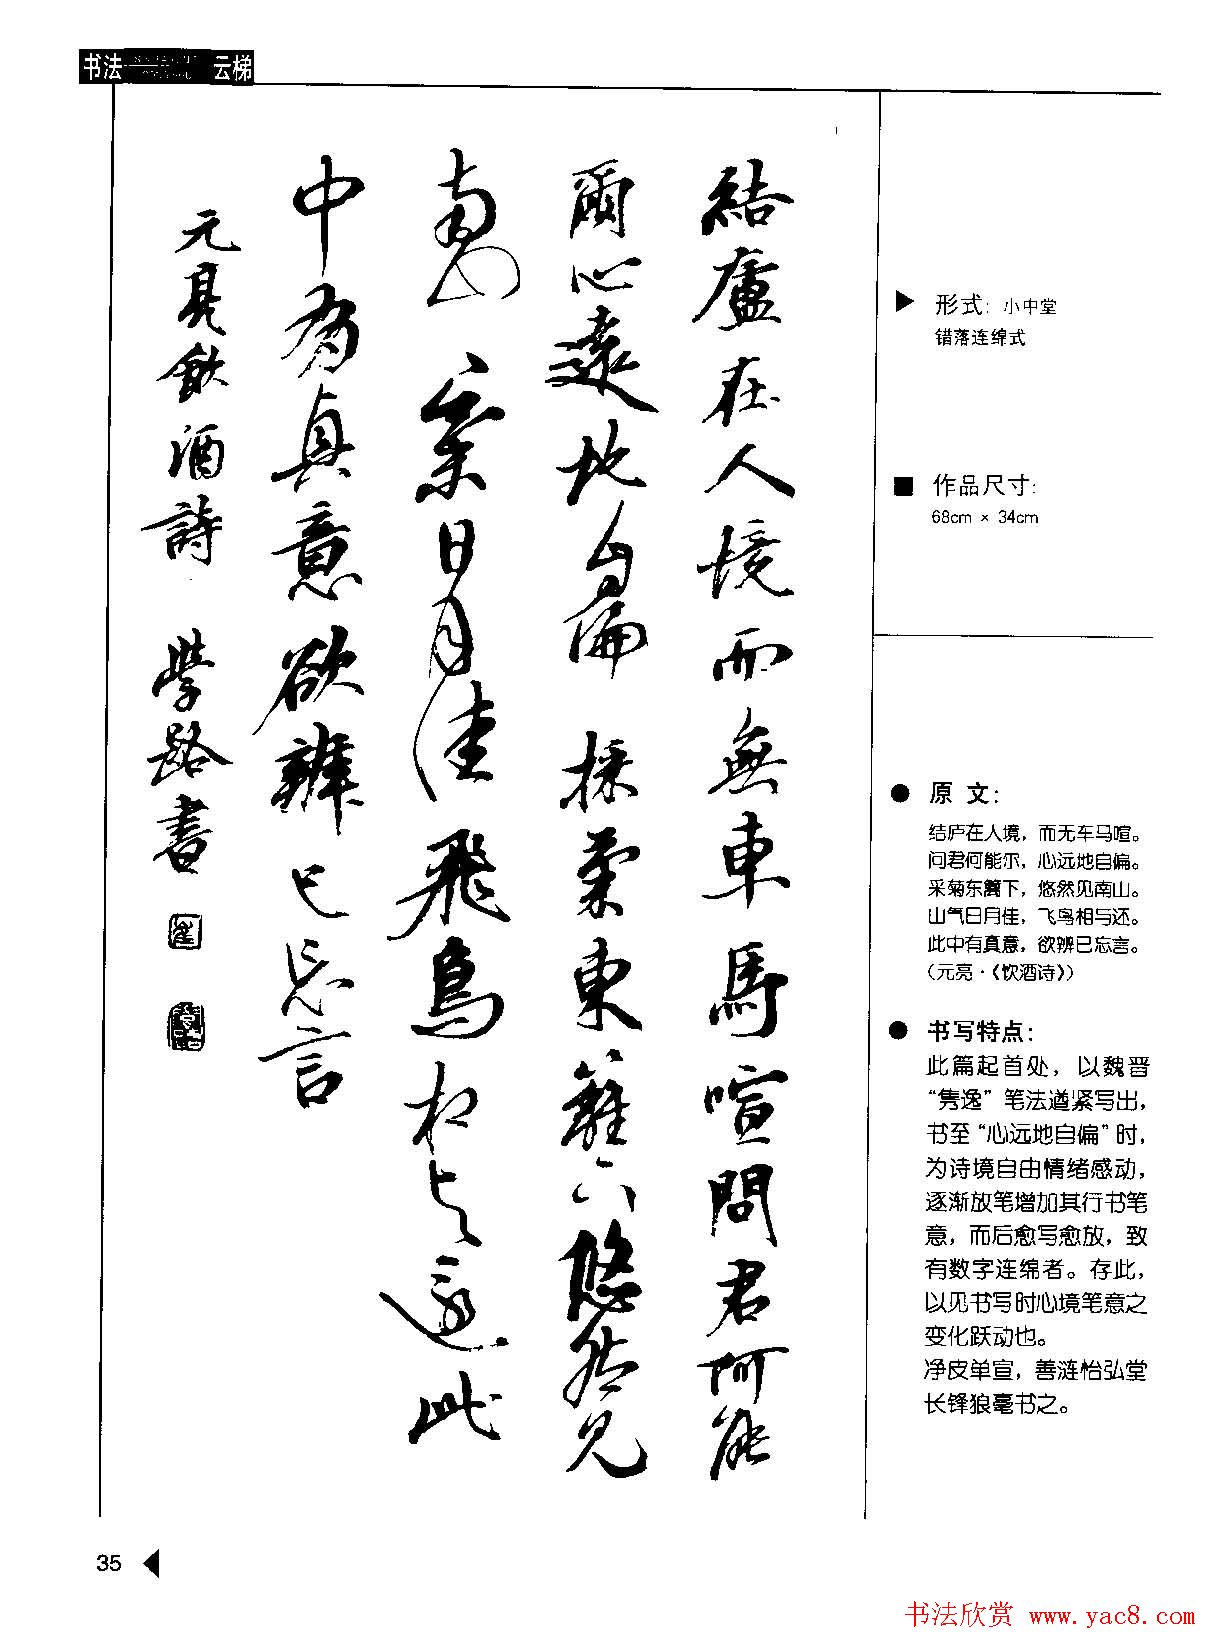 书法 云梯
結廬在人境而無車馬喧問君何能
爾心遠地自偏採菊東籬下悠然見
南山氣日月佳飛鳥相与還此
中有真意欲辨已忘言
元亮飲酒詩 學路書
▶ 形式：小中堂
错落连绵式
■ 作品尺寸：
68cm × 34cm
● 原 文：
结庐在人境，而无车马喧。
问君何能尔，心远地自偏。
采菊东篱下，悠然见南山。
山气日月佳，飞鸟相与还。
此中有真意，欲辨已忘言。
（元亮·《饮酒诗》）
● 书写特点：
此篇起首处，以魏晋
“隽逸”笔法遒紧写出，
书至“心远地自偏”时，
为诗境自由情绪感动，
逐渐放笔增加其行书笔
意，而后愈写愈放，致
有数字连绵者。存此，
以见书写时心境笔意之
变化跃动也。
净皮单宣，善涟怡弘堂
长锋狼毫书之。
35
书法欣赏 www.yac8.com